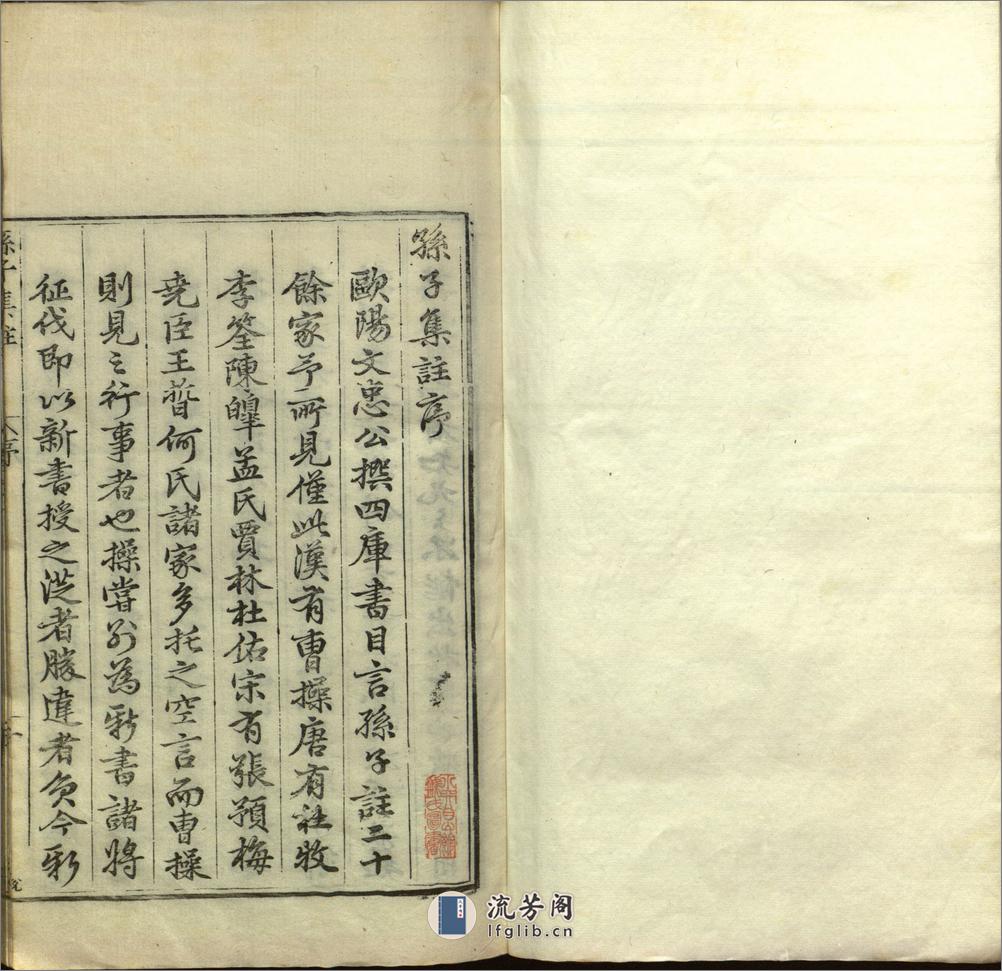 孫子集註序
歐陽文忠公撰四庫書目言孫子註二十
餘家予所見僅此漢有曹操唐有杜牧
李筌陳皥孟氏賈林杜佑宋有張預梅
堯臣王晳何氏諸家多托之空言而曹操
則見之行事者也操嘗別為新書諸將
征伐即以新書授之從者勝違者負今新
孫子集註
序
流芳阁
lfglib.cn